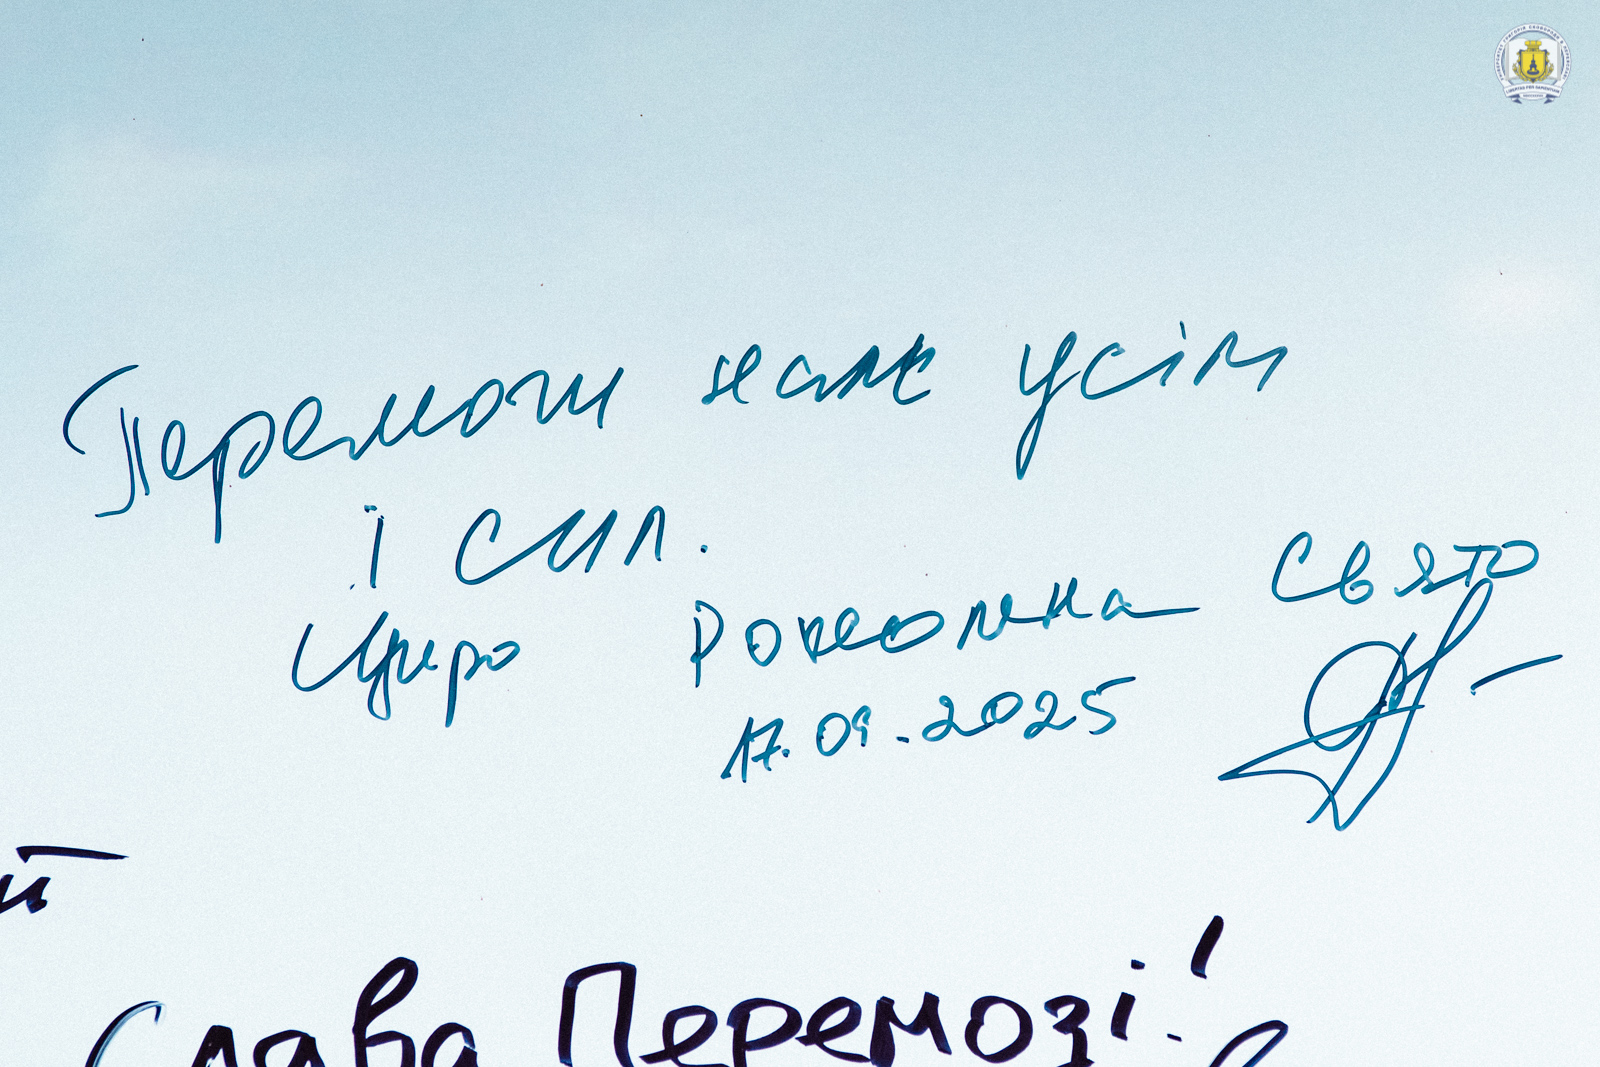 Перемоги нам усім
і сил.
Щиро Роксолана Свято
17.09.2025
й
Слава Перемозі!
LIBERTAS PER SAPIENTIAM